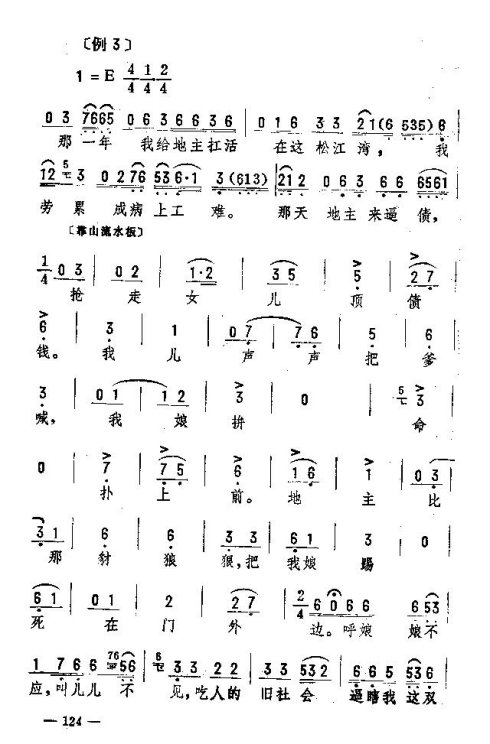 〔例3〕
1=E 4/4 1/4 2/4
0 3 7665 0 6 3 6 6 3 6 | 0 1 6 3 3 2 1(6 535) 6
那一年 我给地主扛活 在这松江湾，我
12 3 0 276 536·1 3(613) | 212 0 6 3 6 6 6561
劳累成病上工难。 那天地主来逼债，
〔靠山流水板〕
1/4 0 3 | 0 2 | 1·2 | 3 5 | 5 | 2 7 |
抢走女儿顶债
6 | 3 | 1 | 0 7 | 7 6 | 5 | 6
钱。我儿声声把爹
3 | 0 1 | 1 2 | 3 | 0 | 3
喊，我娘拚命
0 | 7 | 7 5 | 6 | 1 6 | 3 | 0 3
扑上前。地主比
3 1 | 6 | 6 | 3 3 | 6 1 | 3 | 0
那豺狼狠，把我娘踢
6 1 | 0 1 | 2 | 2 7 | 2/4 6 0 6 6 | 6 53
死在门外边。呼娘娘不
1 7 6 6 56 | 6 3 3 2 2 | 3 3 532 | 6 5 536
应，叫儿儿不见，吃人的旧社会逼瞎我这双
— 124 —